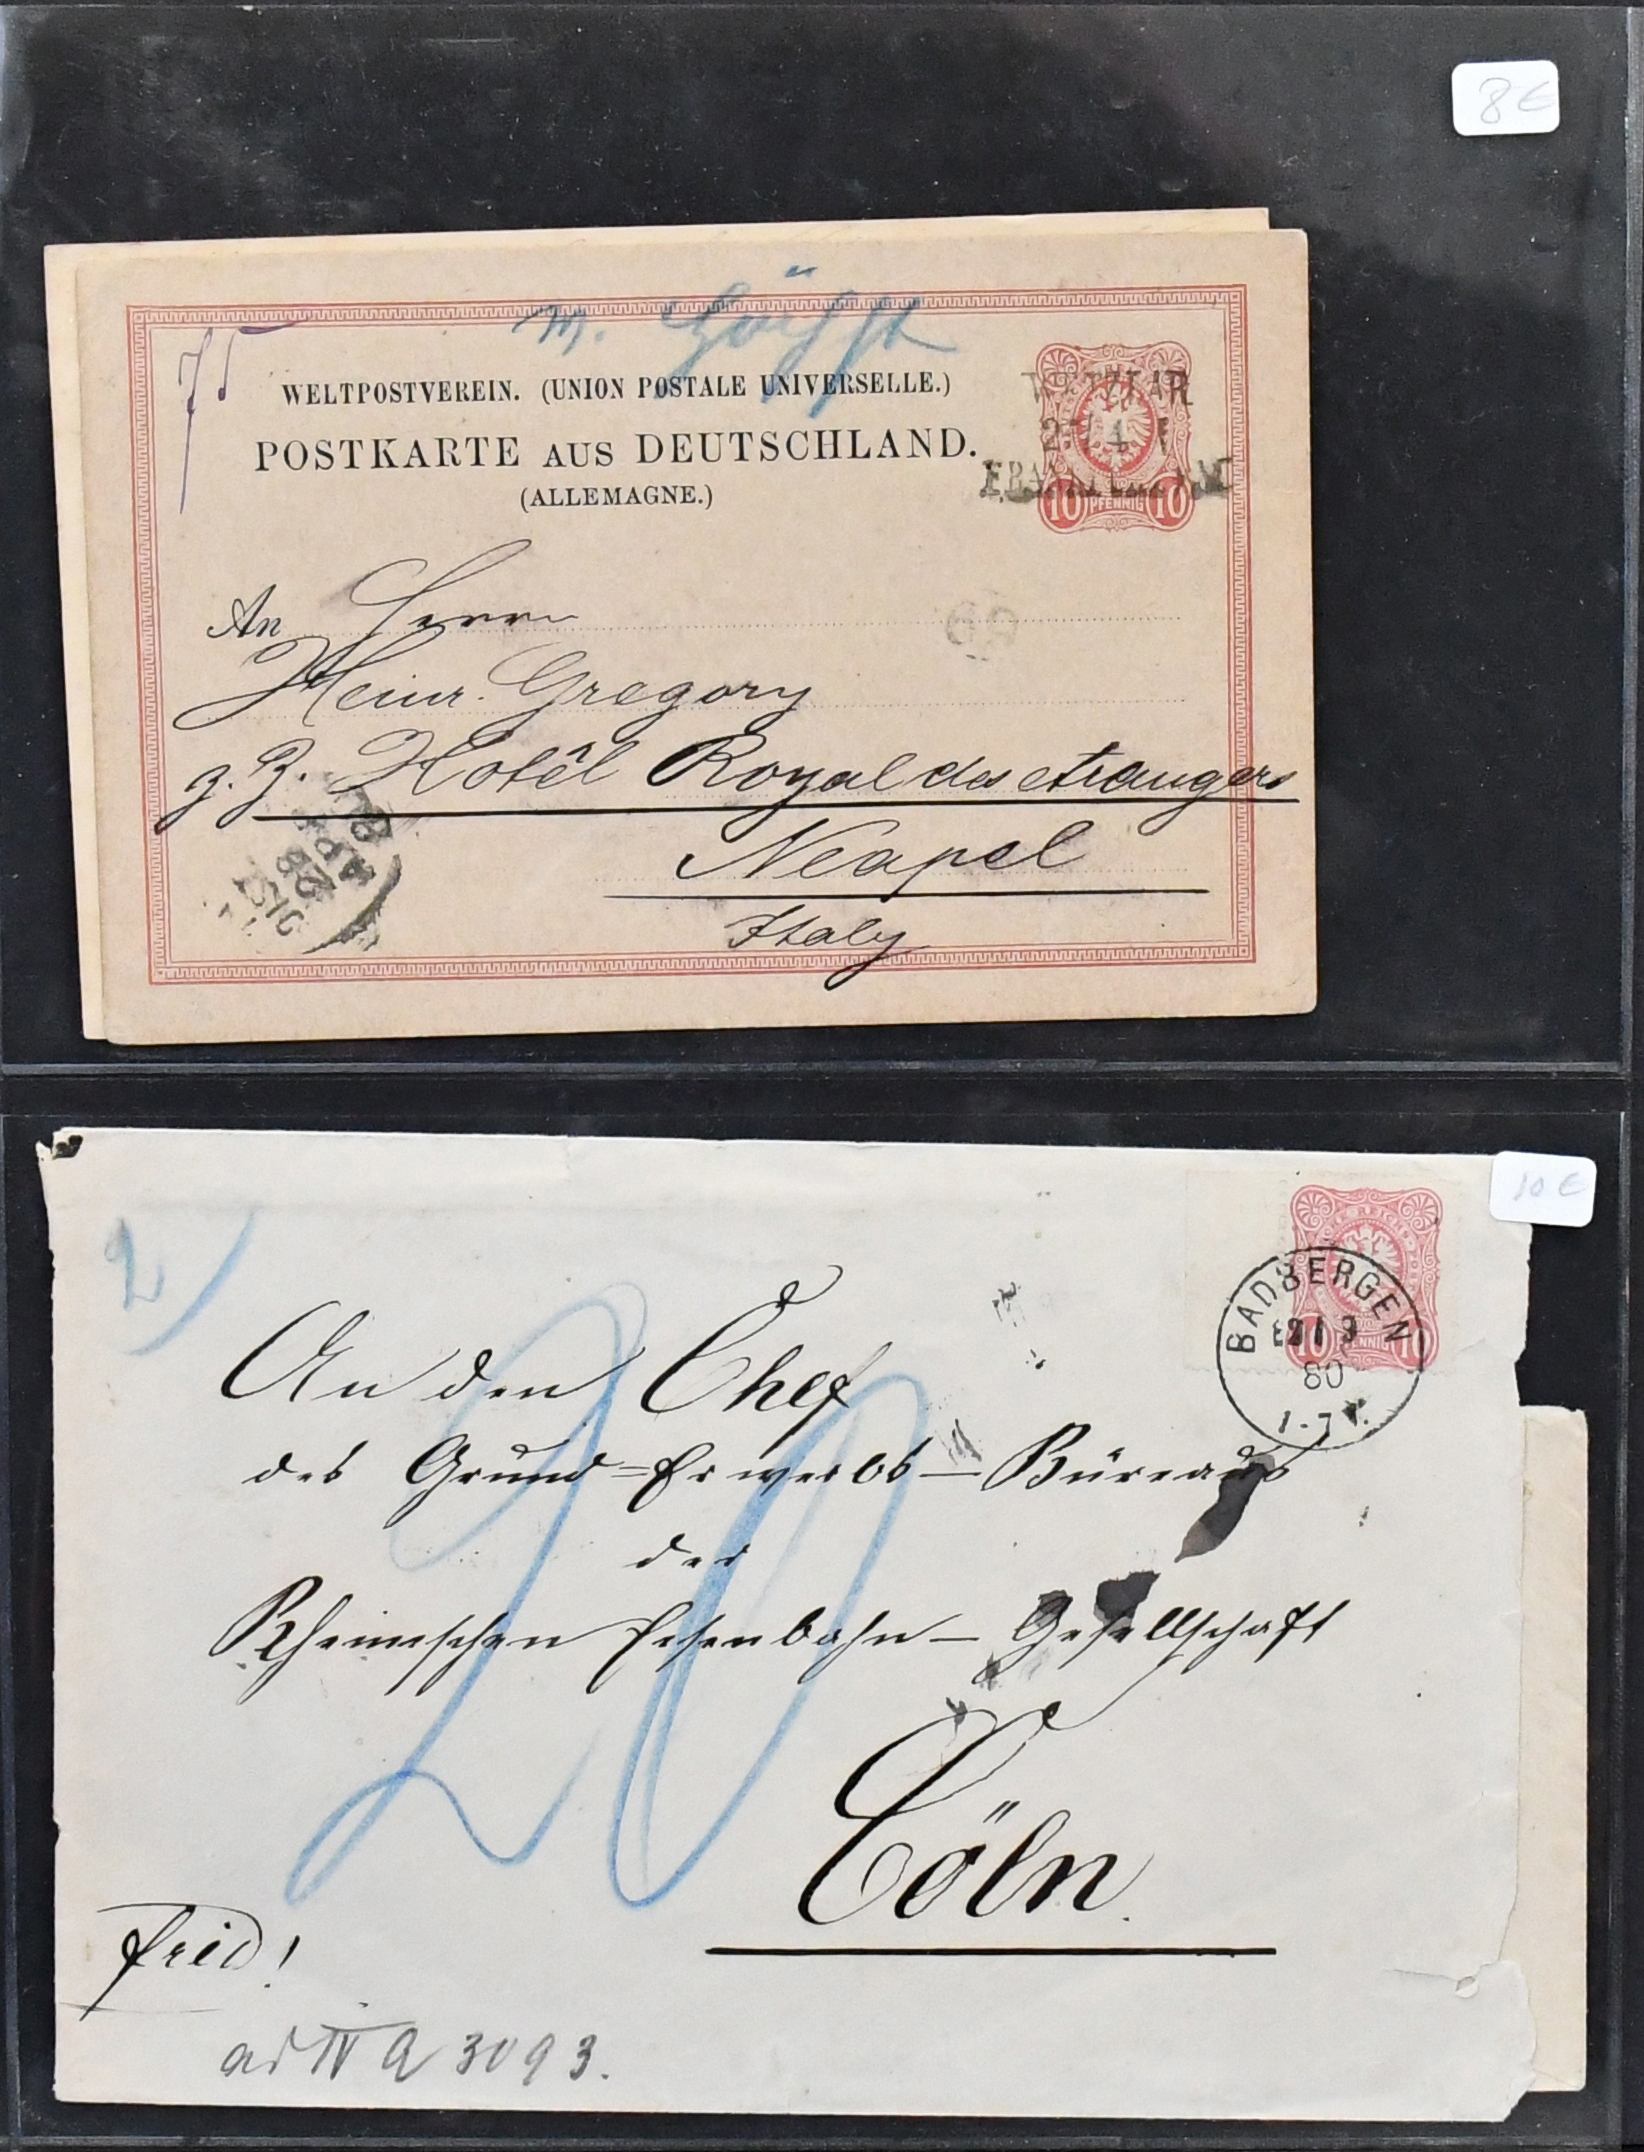 8 €
75
WELTPOSTVEREIN. (UNION POSTALE UNIVERSELLE.)
POSTKARTE AUS DEUTSCHLAND.
(ALLEMAGNE.)
10 PFENNIG 10
An Herrn
Heinr. Gregory
z. Z. Hotêl Royal des etrangers
Neapel
Italy
10 €
2
20
BADBERGEN
21 3
80
1-7 V.
10 PFENNIG 10
An den Chef
des Grund=Erwerbs-Büreaus
der
Rheinischen Eisenbahn-Gesellschaft
Cöln.
frei!
ad IV a 3093.